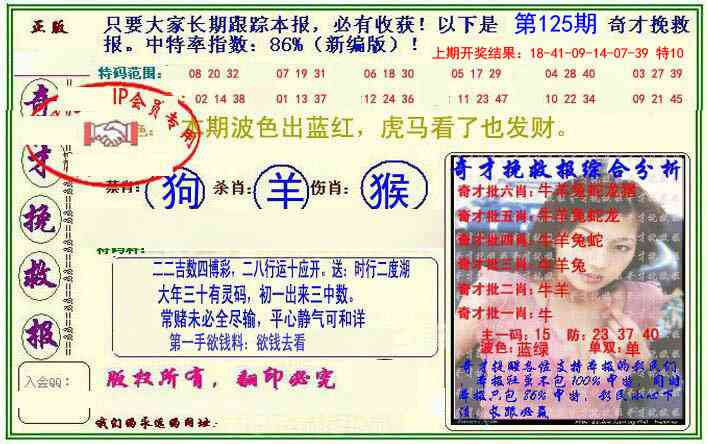 正版
只要大家长期跟踪本报，必有收获！以下是 第125期 奇才挽救
报。中特率指数：86%（新编版）！
上期开奖结果：18-41-09-14-07-39 特10
特码范围： 08 20 32 07 19 31 06 18 30 05 17 29 04 28 40 10 22 34
02 14 38 01 13 37 12 24 36 11 23 47 10 22 34 09 21 45
IP会员专用
本期波色出蓝红，虎马看了也发财。
奇才挽救报
禁肖：狗 杀肖：羊 伤肖：猴
二二吉数四博彩，二八行运十应开。送：时行二度湖
大年三十有灵码，初一出来三中数。
常赌未必全尽输，平心静气可和洋
第一手欲钱料：欲钱去看
版权所有，翻印必究
入会QQ：
我们的永远的网址：
奇才挽救报综合分析
奇才批六肖：牛羊兔蛇龙猪
奇才批五肖：牛羊兔蛇龙
奇才批四肖：牛羊兔蛇
奇才批三肖：牛羊兔
奇才批二肖：牛羊
奇才批一肖：牛
主一码：15 防：23 37 40
波色：蓝绿 单双：单